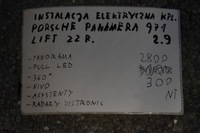 INSTALACJA ELEKTRYCZNA KPL.
PORSCHE PANAMERA 971
LIFT 22 R. 2.9
- PANORAMA 2800
- FULL LED
- 360° 300
- NIVO
- ASYSTENTY NT
- RADARY DISTRONIC